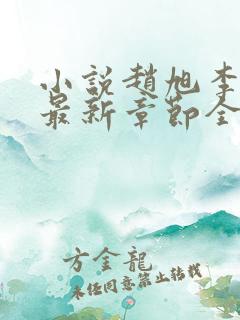 小說趙旭李
最新章節全
方金龍
未經同意禁止轉載